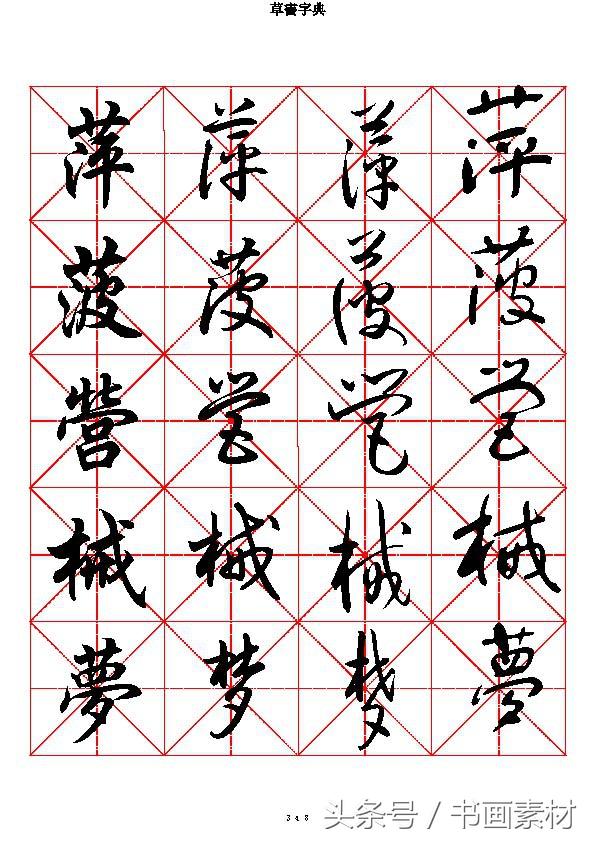 草書字典
萍 萍 萍 萍
菠 菠 菠 菠
營 營 營 營
械 械 械 械
夢 梦 梦 夢
348
头条号 / 书画素材